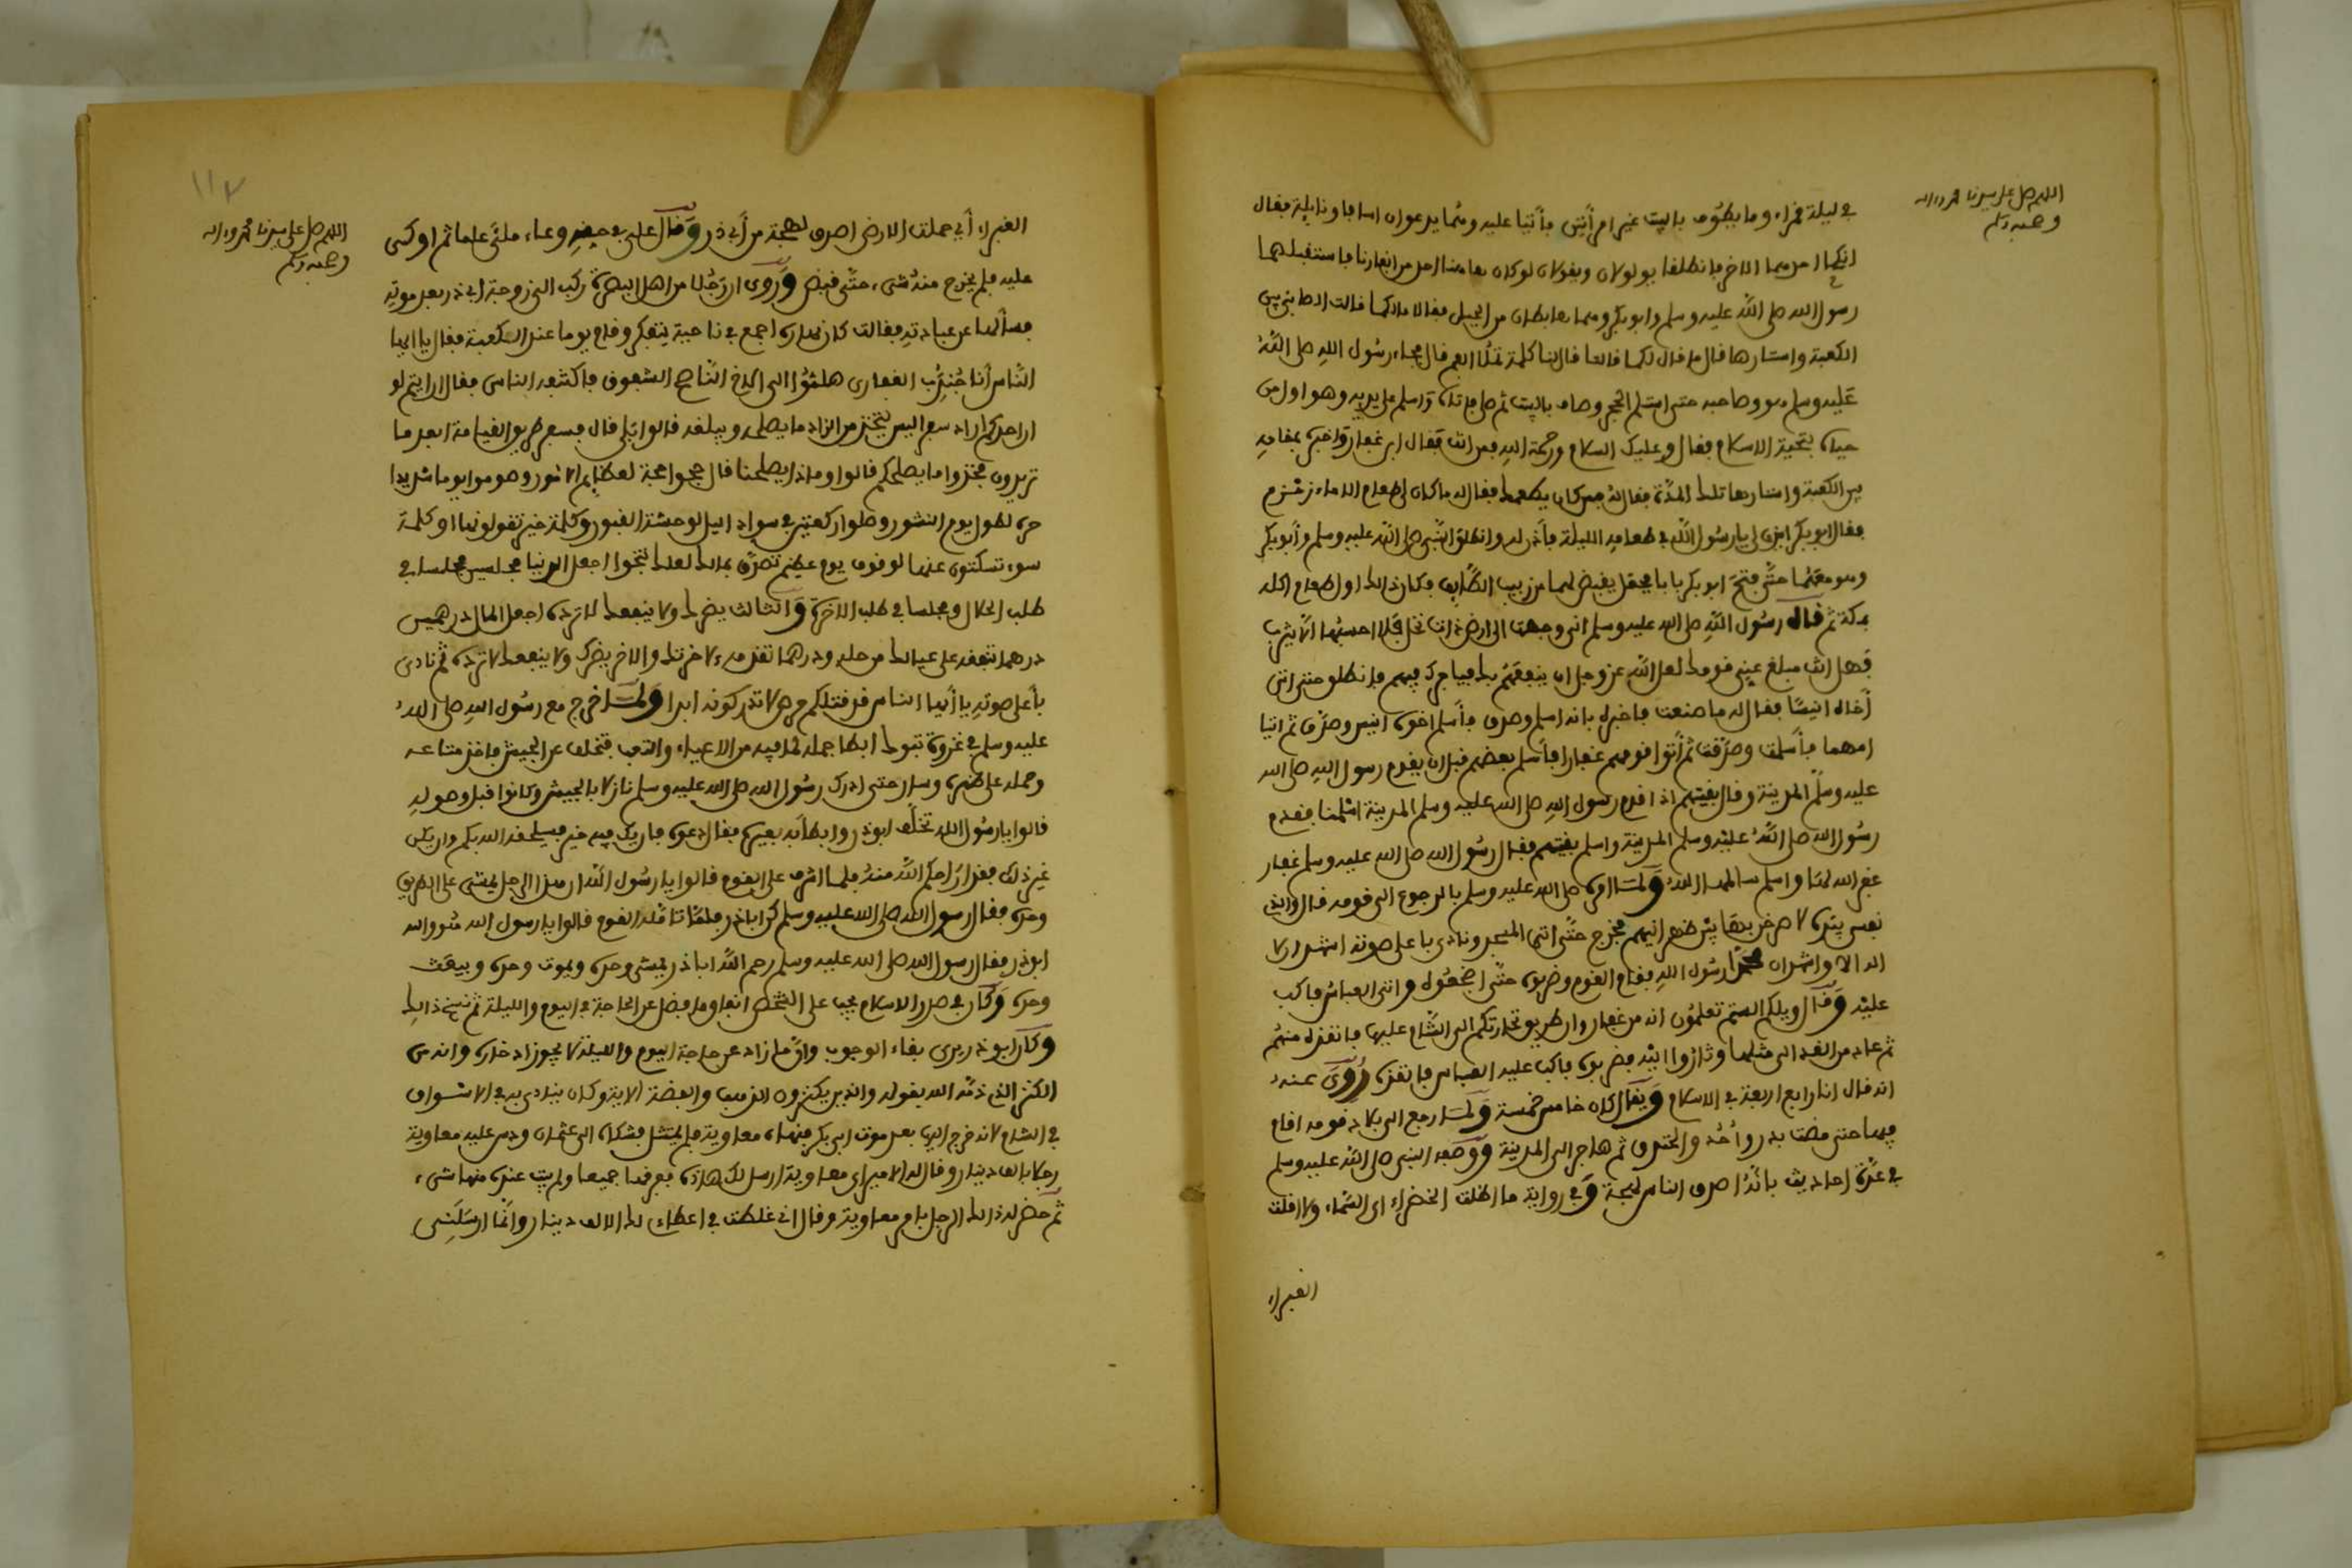 اللهم صل على سيدنا محمد وءاله
وصحبه وسلم
في ليلة قمراء وما يطوف بالبيت غير امرأتين فأتيا عليه وهما يدعوان اسافا ونايلة فقال
انكحا احدهما الاخر فانطلقا يولولان ويقولان لو كان هاهنا احد من انفارنا فاستقبلهما
رسول الله صلى الله عليه وسلم وابوبكر وهما هابطان من الجبل فقالا مالكما قالت الصابئ بين
الكعبة واستارها قال ما قال لكما قالتا قال لنا كلمة تملأ الفم قال فجاء رسول الله صلى الله
عليه وسلم هو وصاحبه حتى استلم الحجر وطاف بالبيت ثم صلى فأتاه وأسلم على يديه وهو اول من
حياه بتحية الاسلام فقال وعليك السلام ورحمة الله فمن انت فقال من غفار وأخبره بمقامه
بين الكعبة واستارها تلك المدة فقال له فمن كان يطعمك فقال له ما كان لي طعام الا ماء زمزم
فقال ابوبكر ايذن لي يا رسول الله في طعامه الليلة فأذن له وانطلق النبي صلى الله عليه وسلم وأبوبكر
وهو معهما حتى فتح ابوبكر بابا فجعل يقبض لهما من زبيب الطائف فكان ذالك اول طعام اكله
بمكة ثم قال له رسول الله صلى الله عليه وسلم اني وجهت الى ارض ذات نخل فلا احسبها الا يثرب
فهل انت مبلغ عني قومك لعل الله عز وجل ان ينفعهم بك فياجرك فيهم فانطلق حتى اتى
أخاه انيسا فقال له ما صنعت فاخبره بانه اسلم وصدق فأسلم اخوه انيس وصدق ثم اتيا
امهما فأسلمت وصدقت ثم أتوا قومهم غفارا فأسلم بعضهم قبل ان يقدم رسول الله صلى الله
عليه وسلم المدينة وقال بقيتهم اذا قدم رسول الله صلى الله عليه وسلم المدينة اسلمنا فقدم
رسول الله صلى الله عليه وسلم المدينة واسلم بقيتهم فقال رسول الله صلى الله عليه وسلم غفار
غفر الله لها واسلم سالمها الله ولما امره صلى الله عليه وسلم بالرجوع الى قومه قال والذي
نفسي بيده لاصرخن بها بين ظهرانيهم فخرج حتى اتى المسجد ونادى باعلى صوته اشهد ان لا
اله الا الله واشهد ان محمدا رسول الله فقام القوم وضربوه حتى اضجعوه واتى العباس فاكب
عليه وقال ويلكم الستم تعلمون انه من غفار وان طريق تجارتكم الى الشام عليها فانقذه منهم
ثم عاد من الغد الى مثلها وثاروا اليه فضربوه فاكب عليه العباس فانقذه روي عنه
انه قال انا رابع اربعة في الاسلام ويقال كان خامس خمسة ولما رجع الى بلاد قومه اقام
فيها حتى مضت بدر وأحد والخندق ثم هاجر الى المدينة ووصفه النبي صلى الله عليه وسلم
في عدة احاديث بانه اصدق الناس لهجة وفي رواية ما اظلت الخضراء اي السماء ولا اقلت
الغبراء
١١٧
اللهم صل على سيدنا محمد وءاله
وصحبه وسلم
الغبراء أي حملت الارض اصدق لهجة من أبي ذر وقال علي في حقه وعاء ملئ علما ثم اوكى
عليه فلم يخرج منه شيء حتى قبض وروي ان رجلا من اهل البصرة ركب الى زوجة ابي ذر بعد موته
فسألها عن عبادته فقالت كان نهاره اجمع في ناحية يتفكر وقام يوما عند الكعبة فقال يا ايها
الناس أنا جندب الغفاري هلموا الى الاخ الناصح الشفوق فاكتنفه الناس فقال ارايتم لو
ان احدكم اراد سفرا اليس يتخذ من الزاد ما يصلحه ويبلغه قالوا بلى قال فسفر طريق القيامة ابعد ما
تريدون فخذوا ما يصلحكم قالوا وماذا يصلحنا قال حجوا حجة لعظايم الامور وصوموا يوما شديدا
حره لطول يوم النشور وصلوا ركعتين في سواد اليل لوحشة القبور وكلمة خير تقولونها او كلمة
سوء تسكتون عنها لوقوف يوم عظيم تصدق بمالك لعلك تنجوا اجعل الدنيا مجلسين مجلسا في
طلب الحلال ومجلسا في طلب الاخرة والثالث يضرك ولا ينفعك لا ترده اجعل المال درهمين
درهما تنفقه على عيالك من حله ودرهما تقدمه لاخرتك والاخر يضرك ولا ينفعك لا ترده ثم نادى
بأعلى صوته يا أيها الناس قد قتلكم حرص لا تدركونه ابدا ولما خرج مع رسول الله صلى الله
عليه وسلم في غزوة تبوك ابطا جمله لما فيه من الاعياء والتعب فتخلف عن الجيش فاخذ متاعه
وحمله على ظهره وسار حتى ادرك رسول الله صلى الله عليه وسلم نازلا بالجيش وكانوا قبل وصوله
قالوا يا رسول الله تخلف ابوذر وابطأ به بعيره فقال دعوه فان يك فيه خير فسيلحقه الله بكم وان يكن
غير ذلك فقد اراحكم الله منه فلما اشرف على القوم قالوا يا رسول الله ان هذا الرجل يمشي على الطريق
وحده فقال رسول الله صلى الله عليه وسلم كن اباذر فلما تأمله القوم قالوا يا رسول الله هو والله
ابوذر فقال رسول الله صلى الله عليه وسلم رحم الله اباذر يمشي وحده ويموت وحده ويبعث
وحده وكان في صدر الاسلام يجب على الشخص انفاق ما فضل عن الحاجة في اليوم والليلة ثم نسخ ذالك
وكان ابوذر يرى بقاء الوجوب وان ما زاد عن حاجة اليوم والليلة لا يجوز ادخاره وانه من
الكنز الذي ذمه الله بقوله والذين يكنزون الذهب والفضة الاية وكان ينادي به في الاسواق
في الشام لانه خرج اليها بعد موت ابي بكر فنهاه معاوية فلم يمتثل فشكاه الى عثمان ودس عليه معاوية
رجلا بالف دينار وقال له الامير اي معاوية ارسل لك هاذه ففرقها جميعا ولم يبت عنده منها شيء
ثم حضر له ذالك الرجل بامر معاوية وقال اني غلطت في اعطاءي لك الالف دينار وانما ارسلني